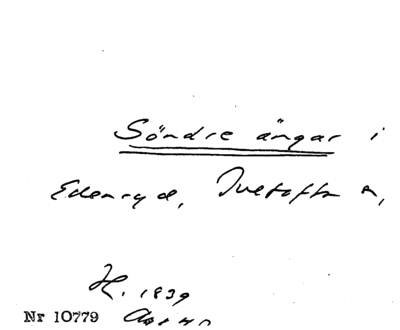 Söndre ängar i
Edenryd, Ivetofta s,
H. 1839
Nr 10779